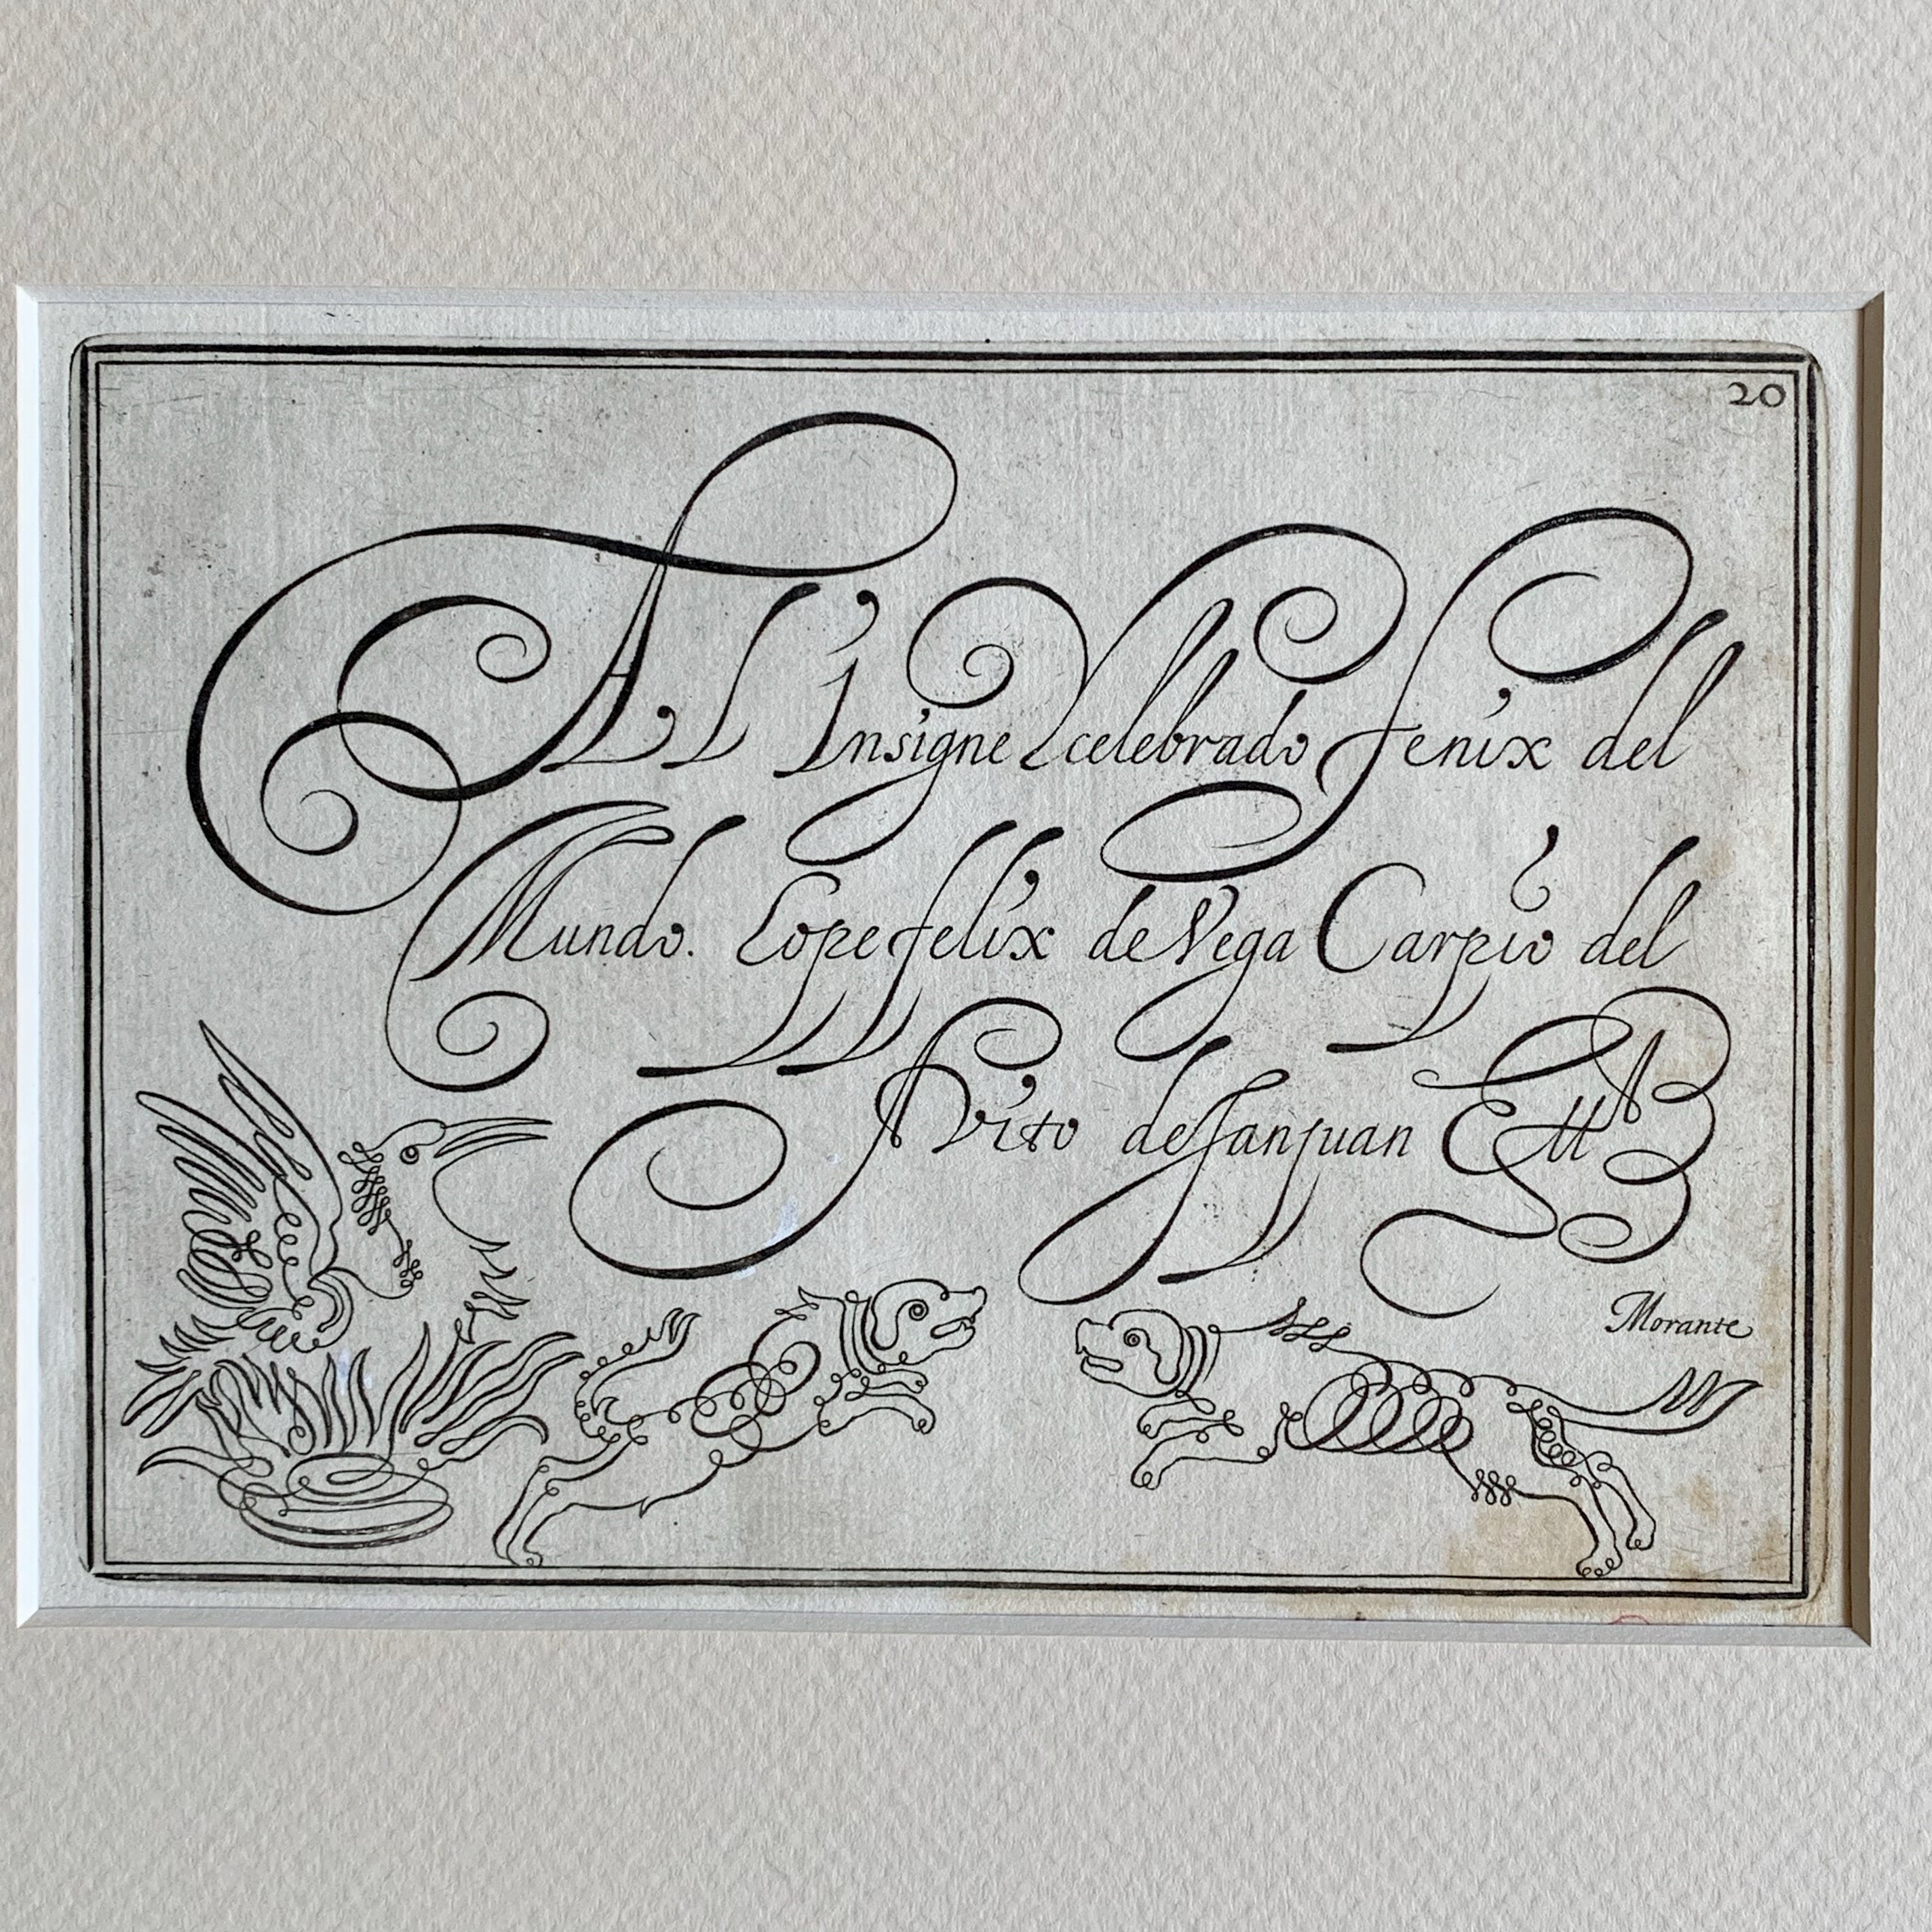 20
Al Insigne y celebrado fenix del
Mundo. Lope felix de Vega Carpio del
Avito de san juan Ett
Morante